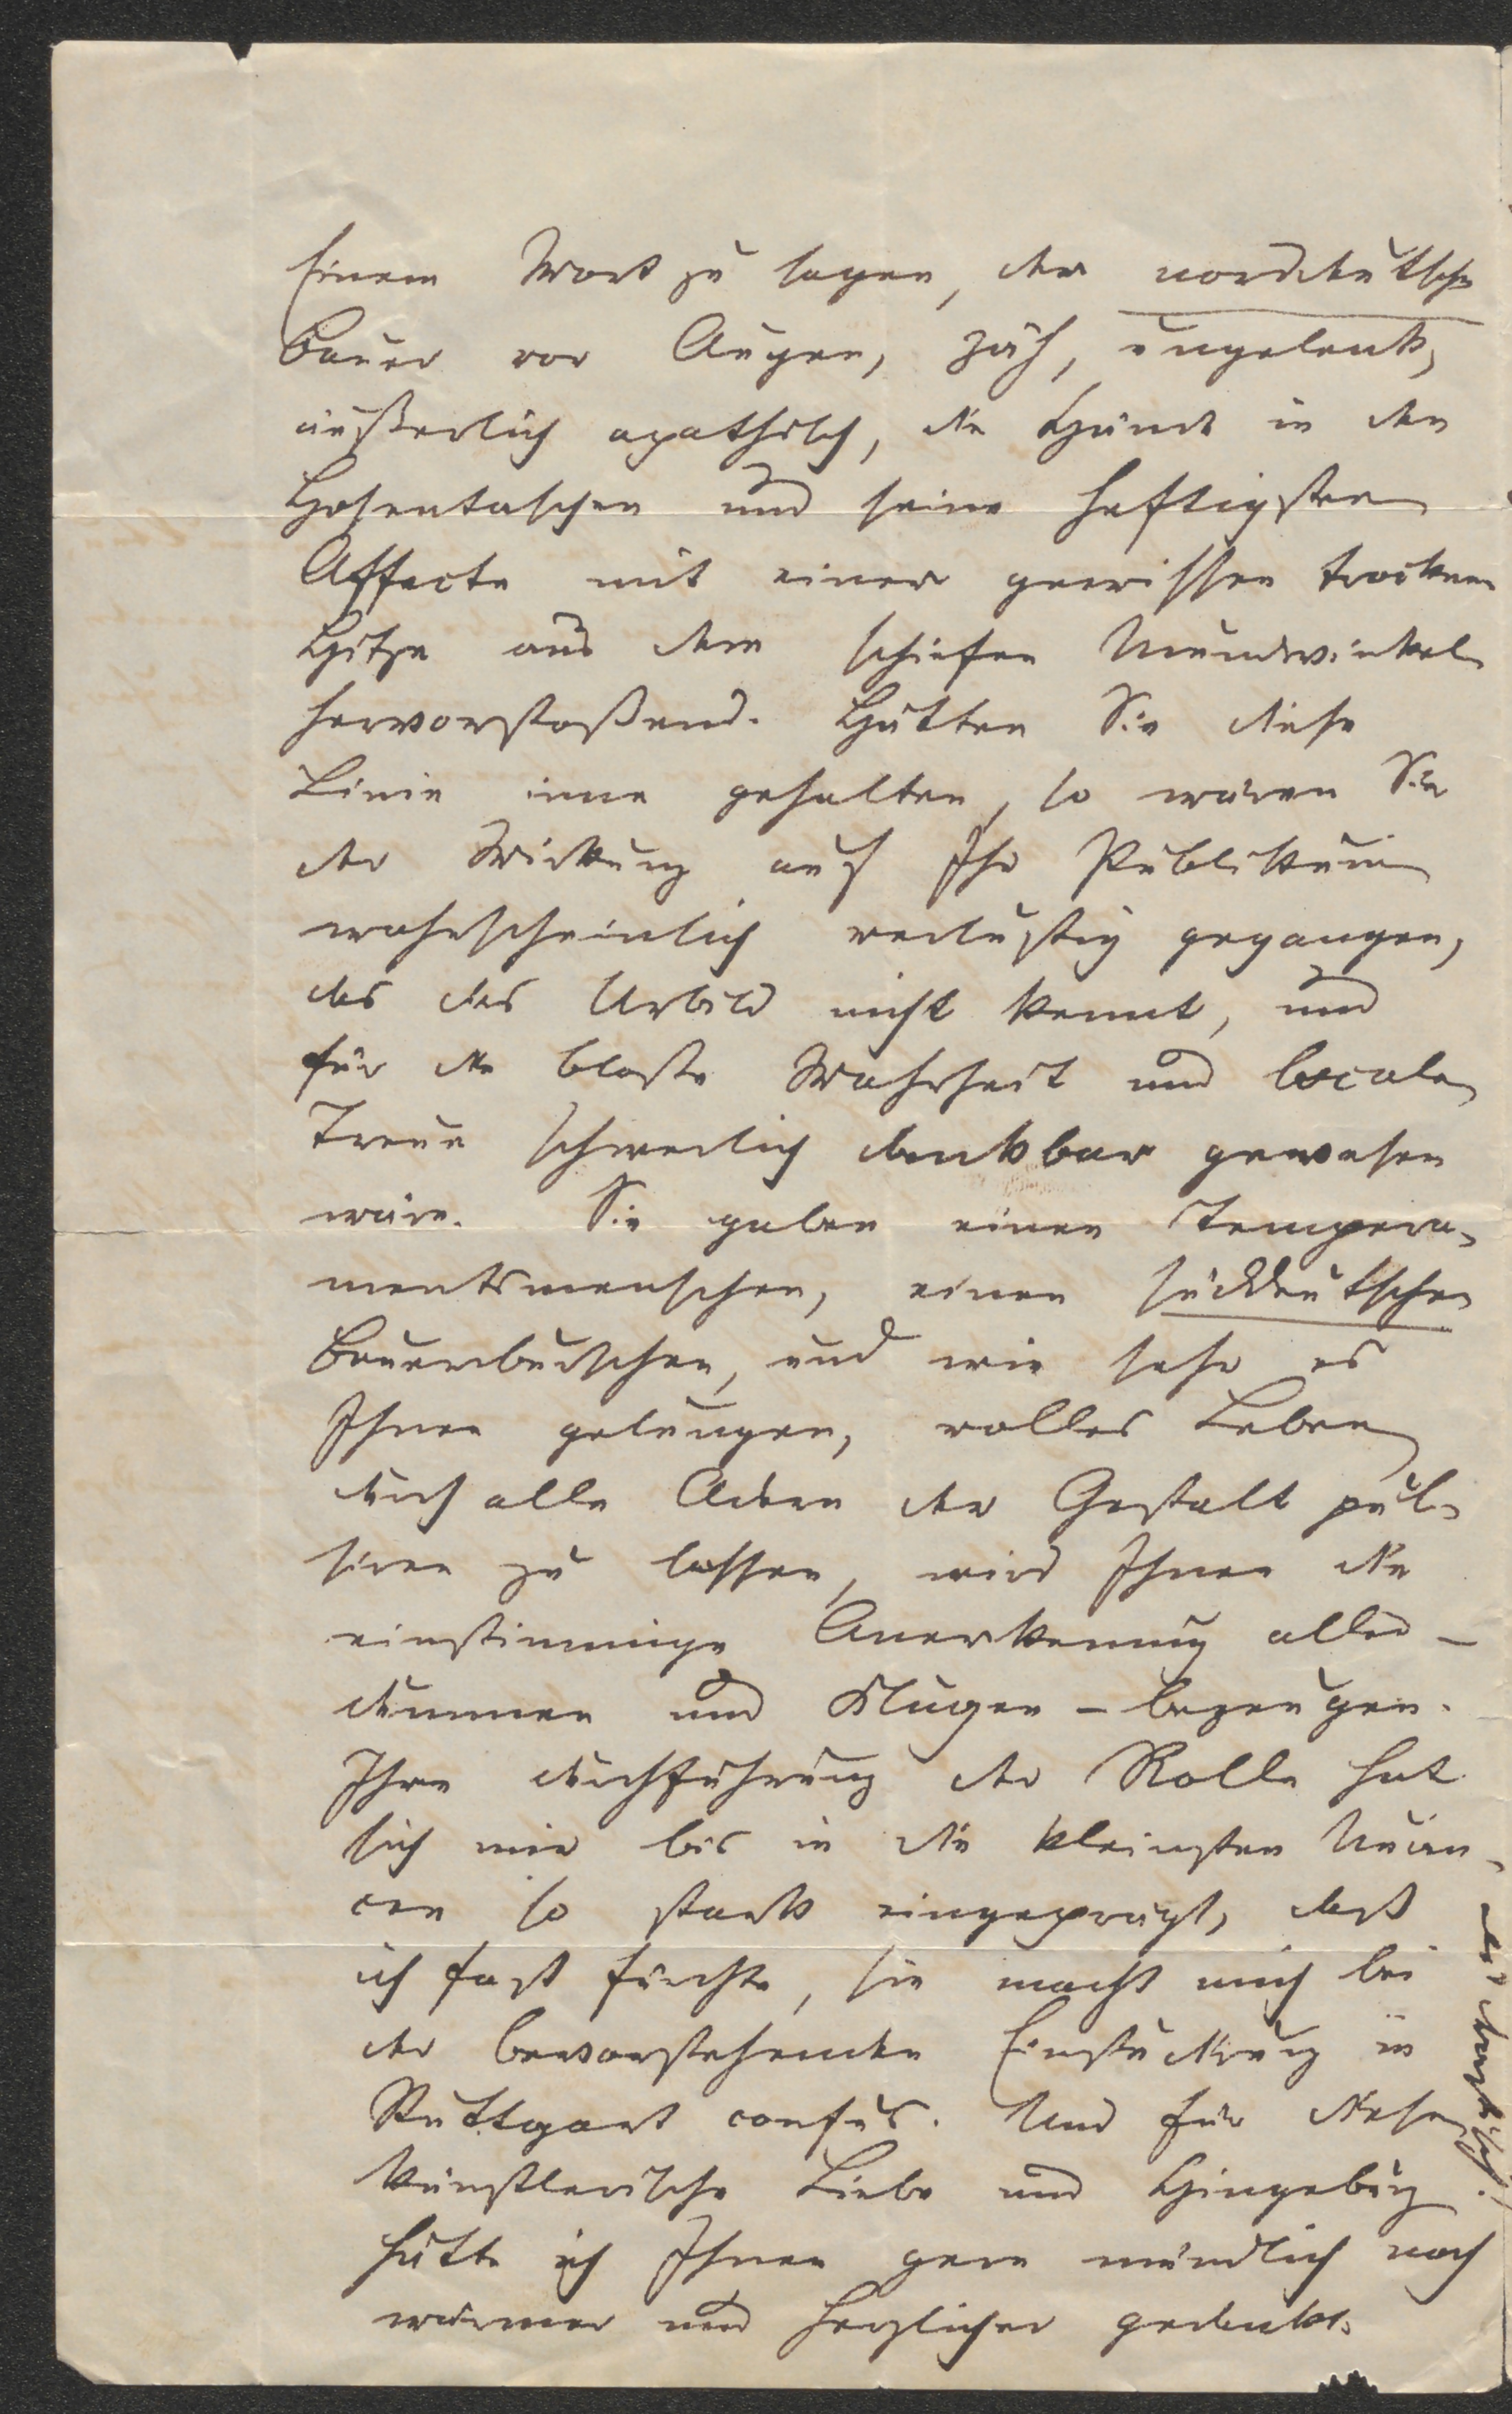 Einem Wort zu sagen, der norddeutsche
Bauer vor Augen, zäh, ungelenk,
äußerlich apathisch, die Hände in den
Hosentaschen und seine heftigsten
Affecte mit einer gewissen trocknen
Hitze aus dem schiefen Mundwinkel
hervorstoßend. Hätten Sie diese
Linie inne gehalten, so wären Sie
der Wirkung auf Ihr Publikum
wahrscheinlich verlustig gegangen,
das das Urbild nicht kennt, und
für die bloße Wahrheit und locale
Treue schwerlich dankbar gewesen
wäre. Sie gaben einen Tempera-
mentsmenschen, einen süddeutschen
Bauernburschen, und wie sehr es
Ihnen gelungen, volles Leben
durch alle Adern der Gestalt pul-
siren zu lassen, wird Ihnen die
einstimmige Anerkennung aller –
Dummen und Klugen – bezeugen.
Ihre Durchführung der Rolle hat
sich mir bis in die kleinsten Nüan-
cen so stark eingeprägt, daß
ich fast fürchte, sie macht mich bei
der bevorstehenden Einstudirung in
Stuttgart confus. Und für diese
künstlerische Liebe und Hingebung
hätte ich Ihnen gern mündlich noch
wärmer und herzlicher gedankt.